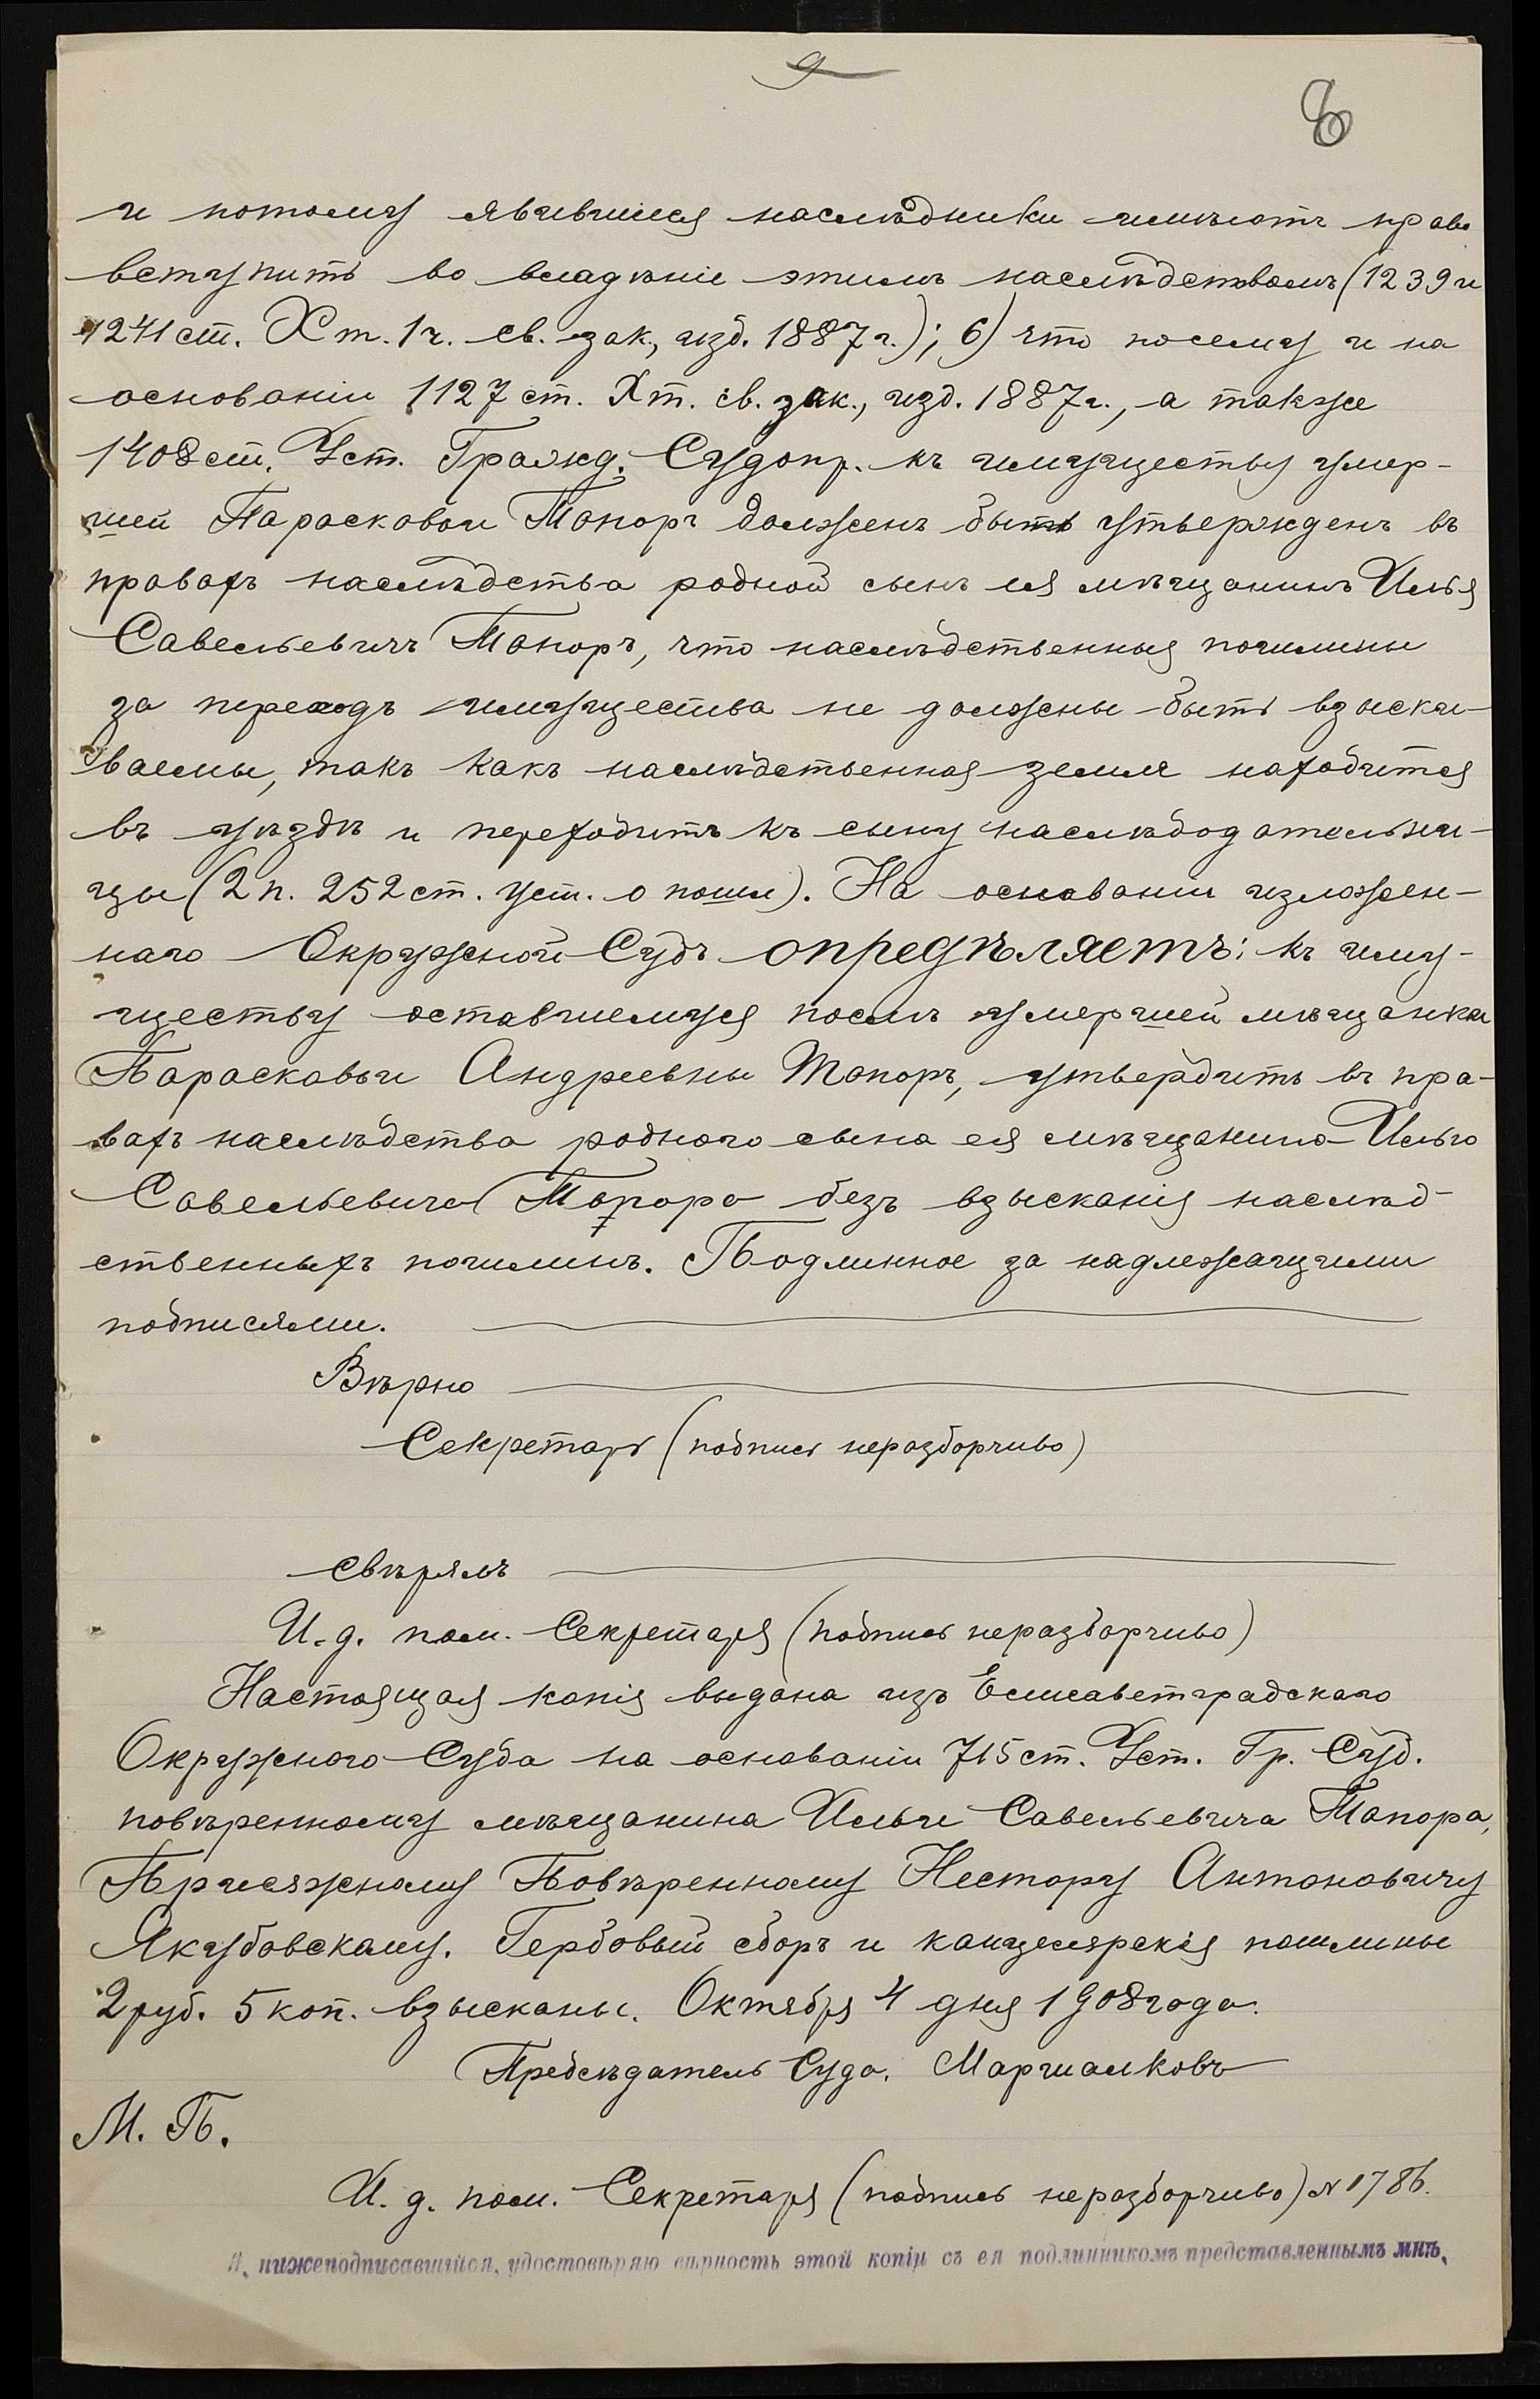 9
8
и потому явившиеся наслѣдники имѣютъ право
вступить во владѣніе этимъ наслѣдствомъ (1239 и
1241 ст. X т. 1 ч. св. зак., изд. 1887 г.); 6) что посему и на
основаніи 1127 ст. X т. св. зак., изд. 1887 г., а также
1408 ст. Уст. Гражд. Судопр. къ имуществу умер-
шей Парасковьи Топоръ долженъ быть утвержденъ въ
правахъ наслѣдства родной сынъ ея мѣщанинъ Илья
Савельевичъ Топоръ, что наслѣдственныя пошлины
за переходъ имущества не должны быть взыски-
ваемы, такъ какъ наслѣдственная земля находится
въ уѣздѣ и переходитъ къ сыну наслѣдодательни-
цы (2 п. 252 ст. уст. о пошл). На основаніи изложен-
наго Окружной Судъ опредѣляетъ: къ иму-
ществу оставшемуся послѣ умершей мѣщанки
Парасковьи Андреевны Топоръ, утвердить въ пра-
вахъ наслѣдства родного сына ея мѣщанина Илью
Савельевича Топора безъ взысканія наслѣд-
ственныхъ пошлинъ. Подлинное за надлежащими
подписями.
Вѣрно
Секретарь (подпись неразборчиво)
Свѣрялъ
И. д. пом. Секретаря (подпись неразборчиво)
Настоящая копія выдана изъ Елисаветградскаго
Окружного Суда на основаніи 715 ст. Уст. Гр. Суд.
повѣренному мѣщанина Ильи Савельевича Топора,
Присяжному Повѣренному Нестору Антоновичу
Якубовскому. Гербовый сборъ и канцелярскія пошлины
2 руб. 5 коп. взысканы. Октября 4 дня 1908 года.
Предсѣдатель Суда. Маршалковъ
М. П.
И. д. пом. Секретаря (подпись неразборчиво) № 1786.
Я, нижеподписавшійся, удостовѣряю вѣрность этой копіи съ ея подлинникомъ представленнымъ мнѣ,